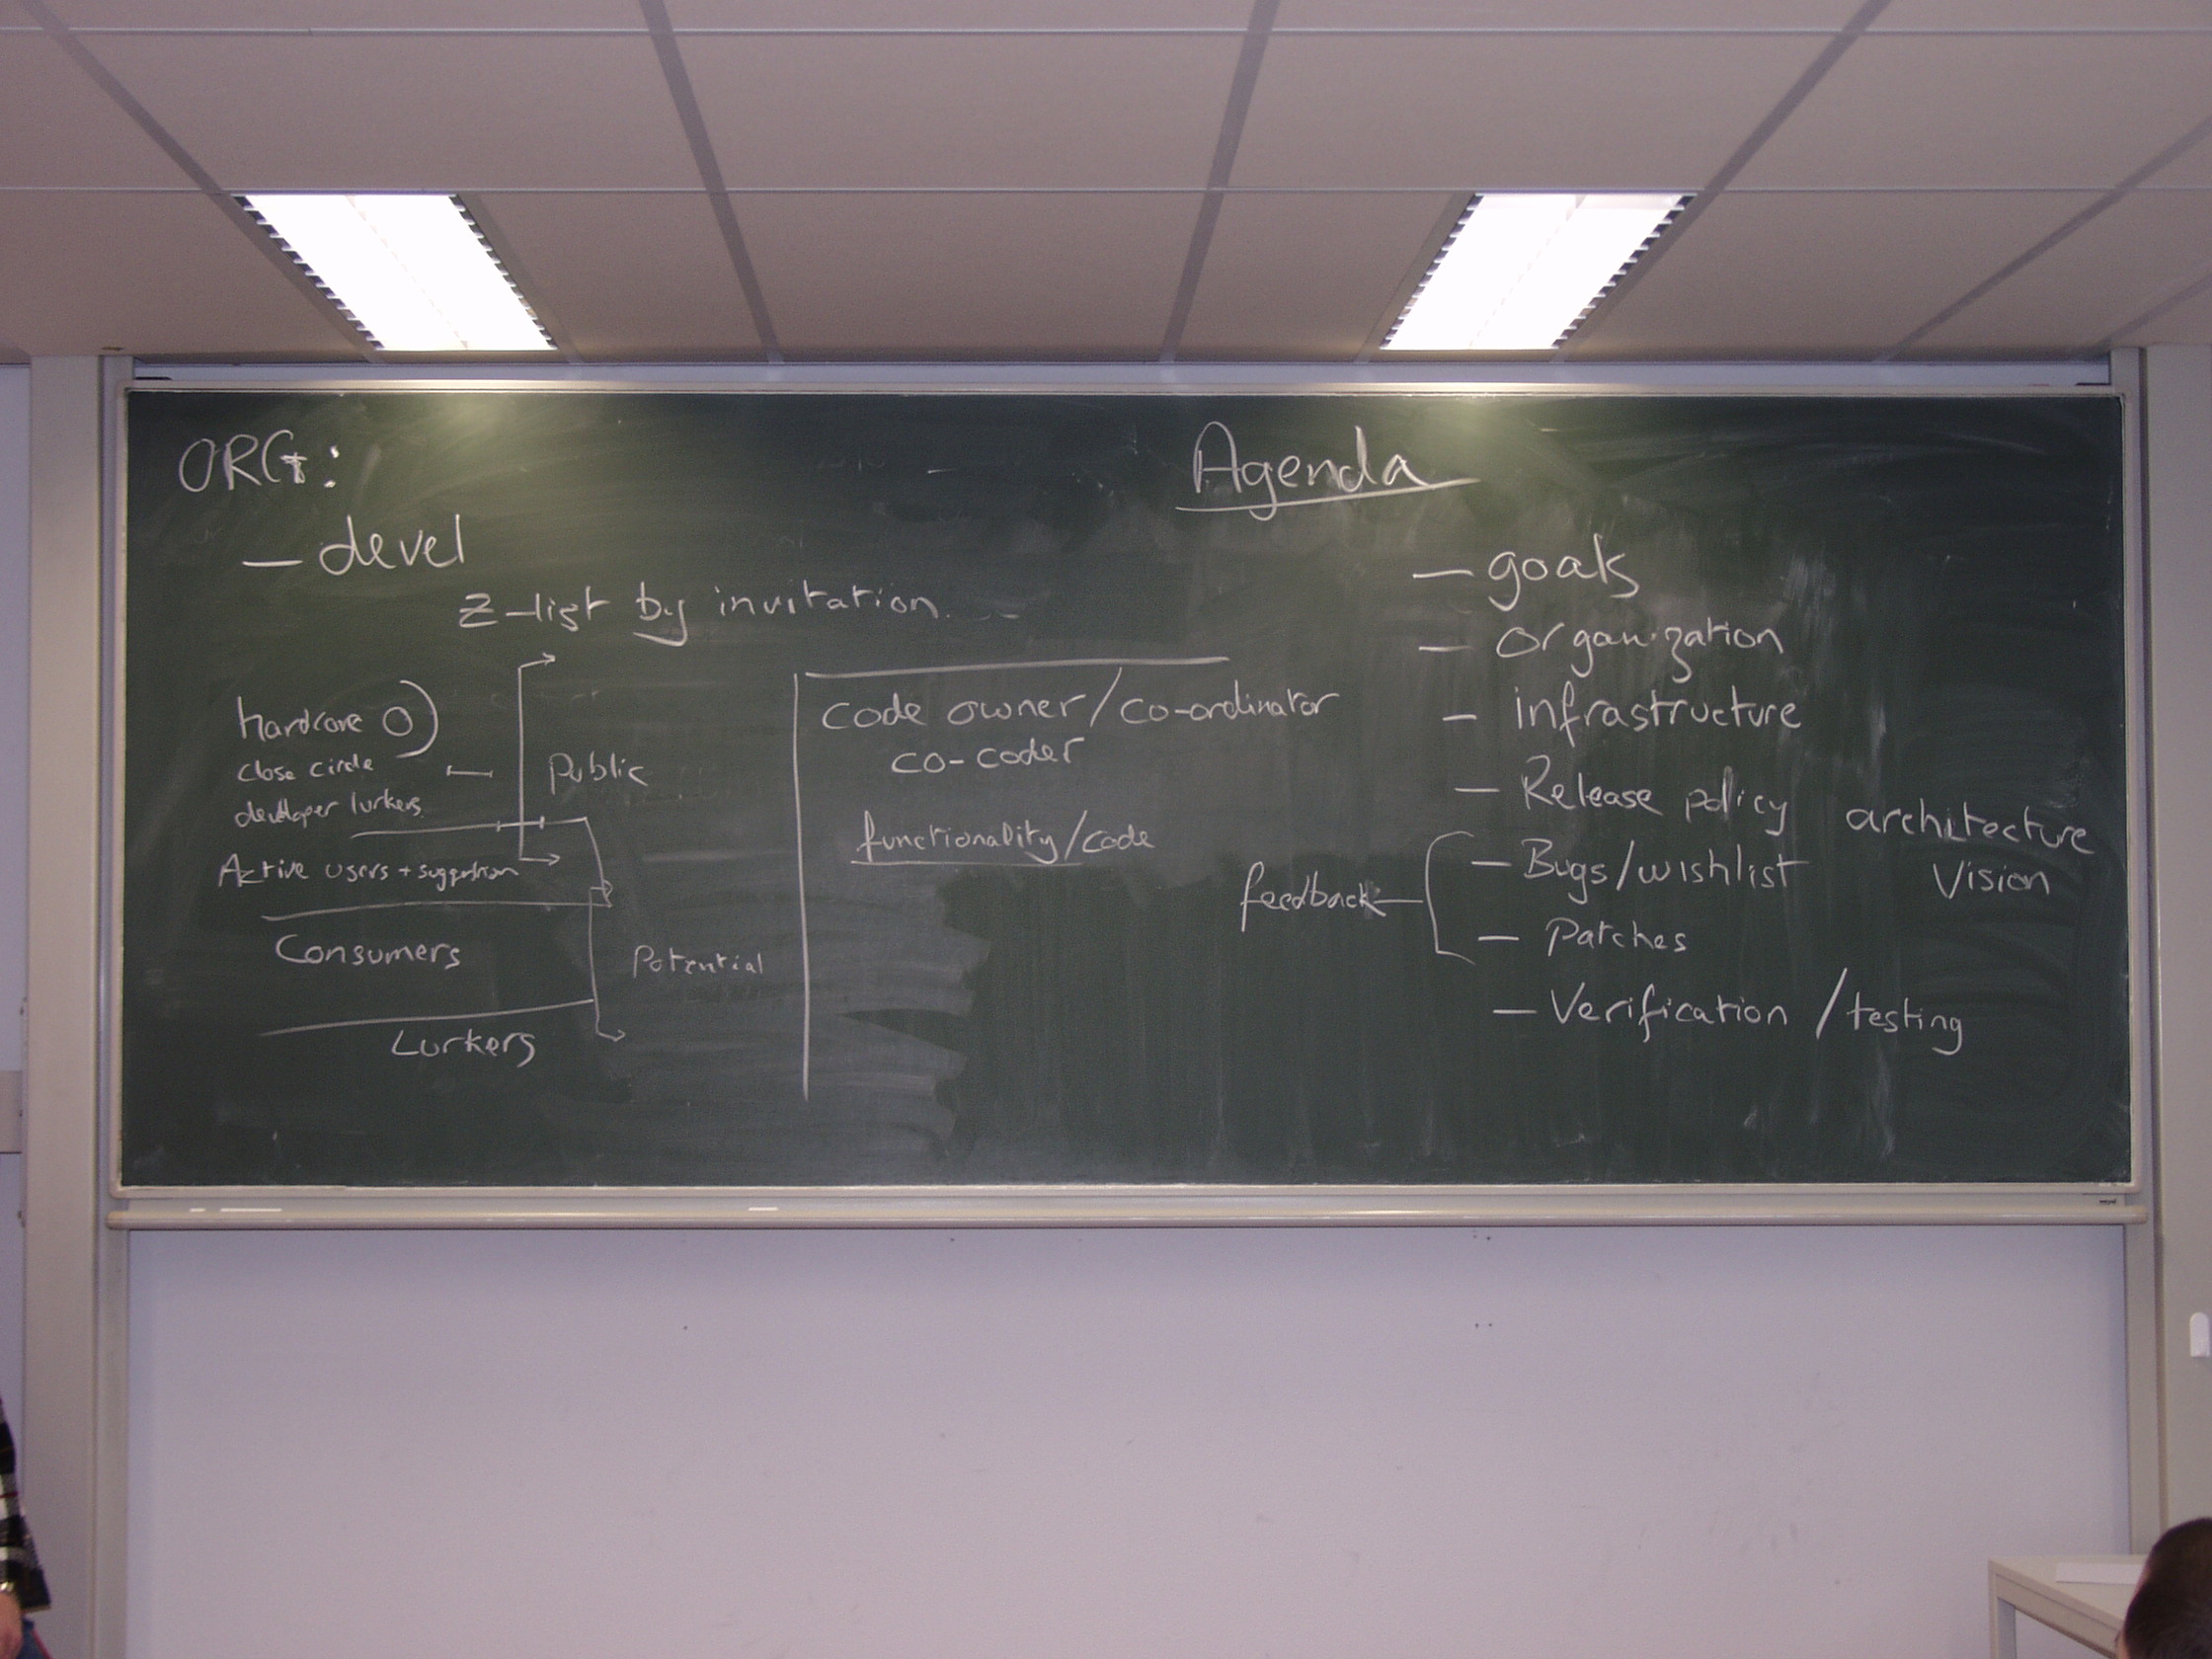 ORG:
- devel
Z-list by invitation.
hardcore
close circle
developer lurkers
Public
Active users + suggestion
Consumers
Potential
Lurkers
code owner/co-ordinator
co-coder
functionality/code
Agenda
- goals
- organization
- infrastructure
- Release policy
architecture
Vision
feedback
- Bugs/wishlist
- Patches
- Verification / testing